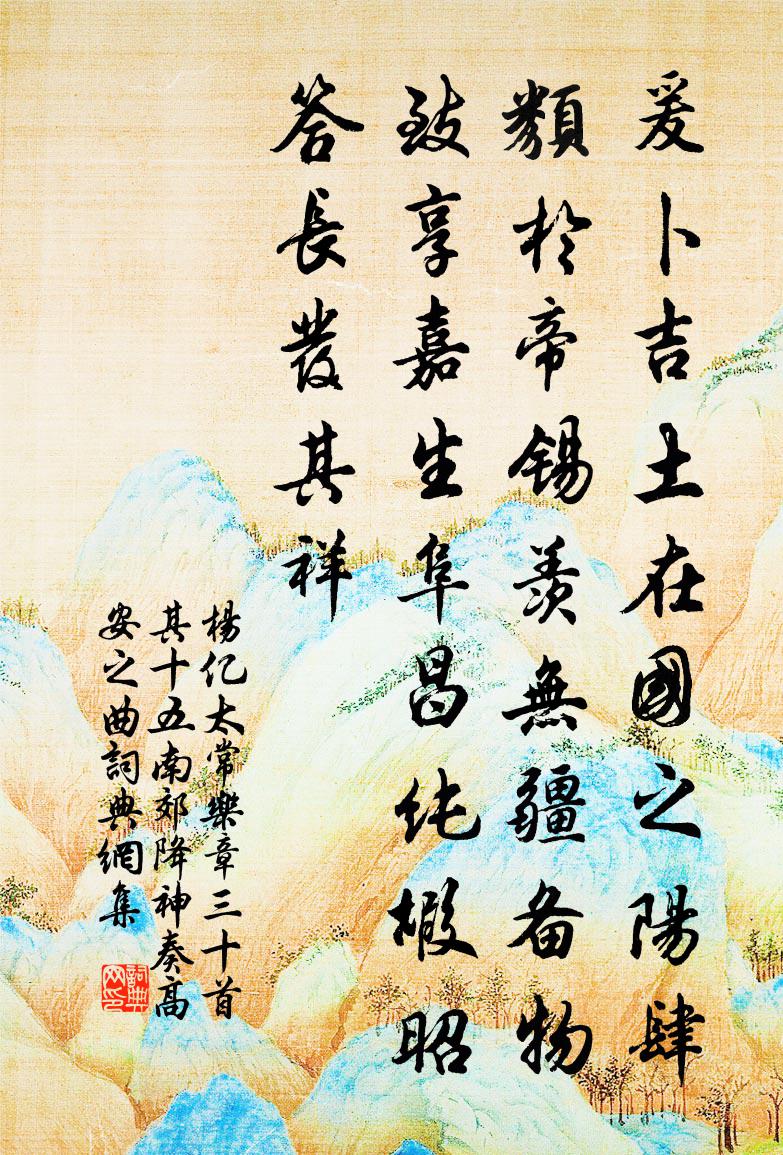 爰卜吉土在國之陽肆
類於帝錫羨無疆备物
致享嘉生阜昌纯嘏昭
答長發其祥
楊亿太常樂章三十首
其十五南郊降神奏高
安之曲詞典網集
詞典网印